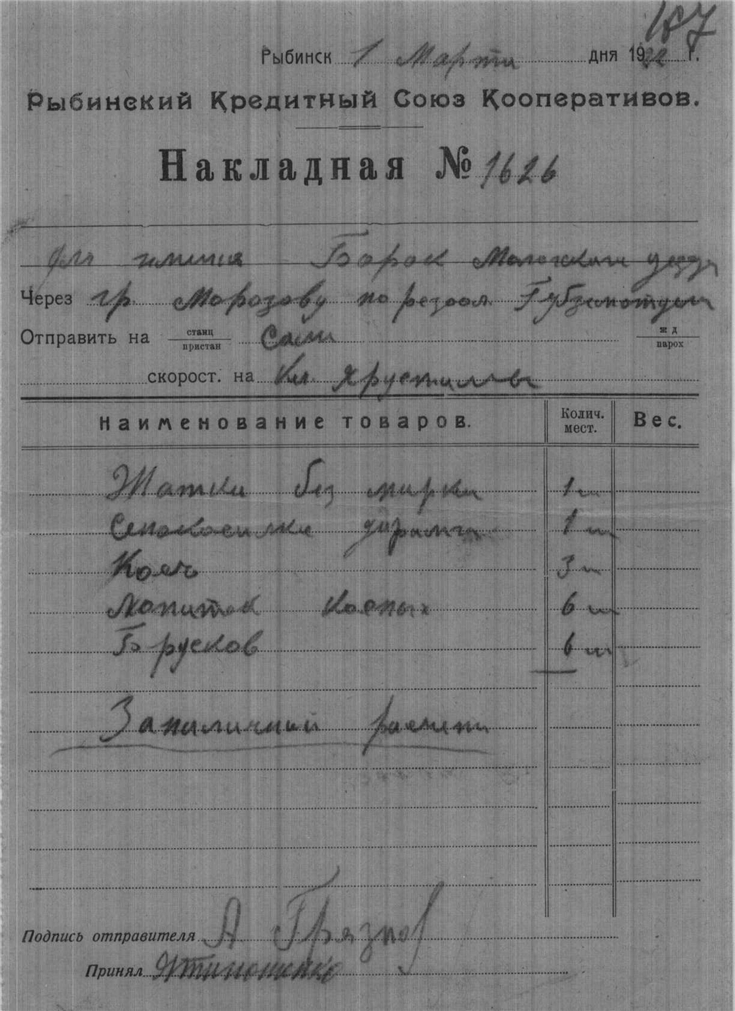 187
Рыбинск 1 Марта дня 1922 г.
Рыбинский Кредитный Союз Кооперативов.
Накладная № 1626
для имения Борок Мологского уезда
Через гр. Морозову по резол. Губземотдела
Отправить на станц пристан Сами ж д парох
скорост. на
Наименование товаров. Колич. мест. Вес.
Жатки без марки 1 ш
Сенокосилка 1 ш
Кос 3 ш
Лопаток косных 6 ш
Брусков 6 ш
За наличный расчет
Подпись отправителя А Грязнов
Принял